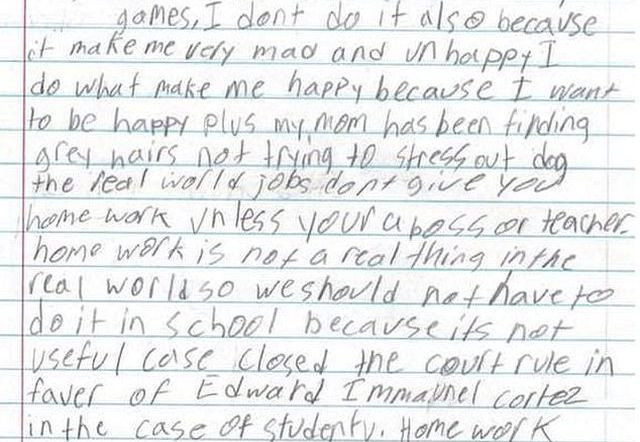 games, I dont do it also because
it make me very mad and unhappy I
do what make me happy because I want
to be happy plus my mom has been finding
grey hairs not trying to stress out dog
the real world jobs dont give you
home work unless your a boss or teacher.
home work is not a real thing in the
real world so we should not have to
do it in school because its not
useful case closed the court rule in
faver of Edward Immaunel cortez
in the case of student v. Home work